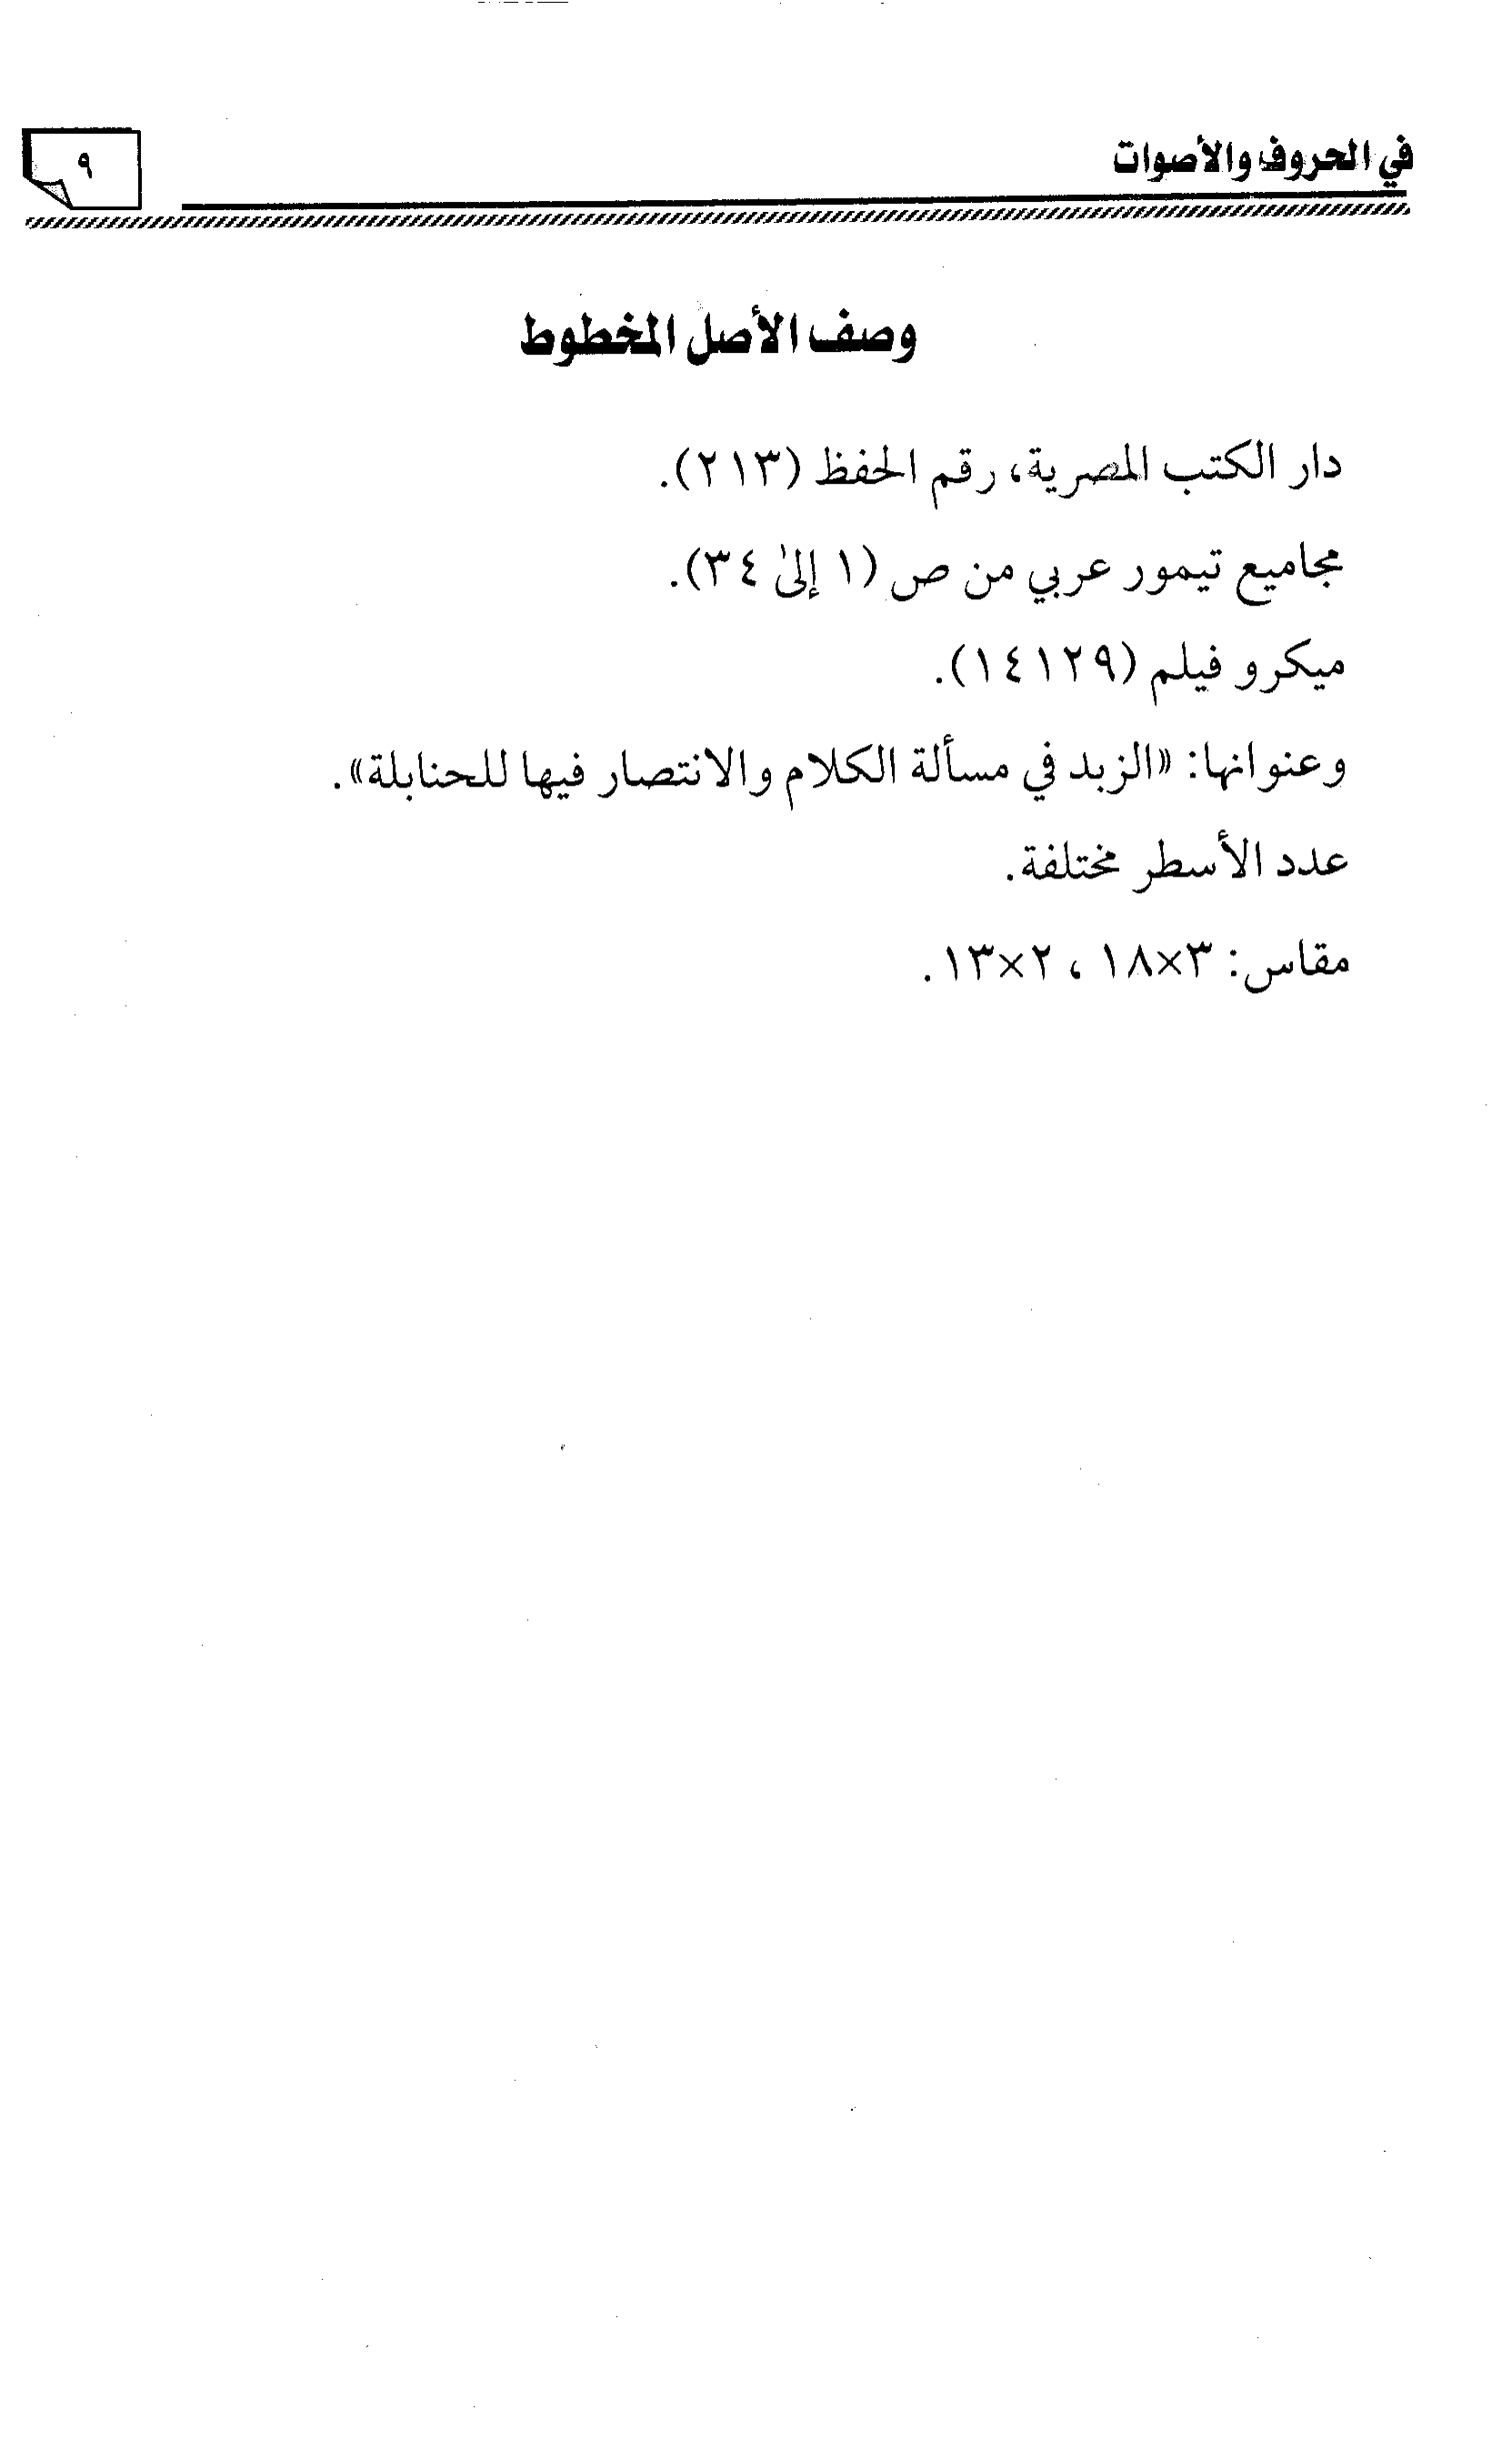 في الحروف والأصوات
٩
وصف الأصل المخطوط
دار الكتب المصرية، رقم الحفظ (٢١٣).
مجاميع تيمور عربي من ص (١ إلىٰ ٣٤).
ميكرو فيلم (١٤١٢٩).
وعنوانها: «الزبد في مسألة الكلام والانتصار فيها للحنابلة».
عدد الأسطر مختلفة.
مقاس: ٣×١٨ ، ٢×١٣.